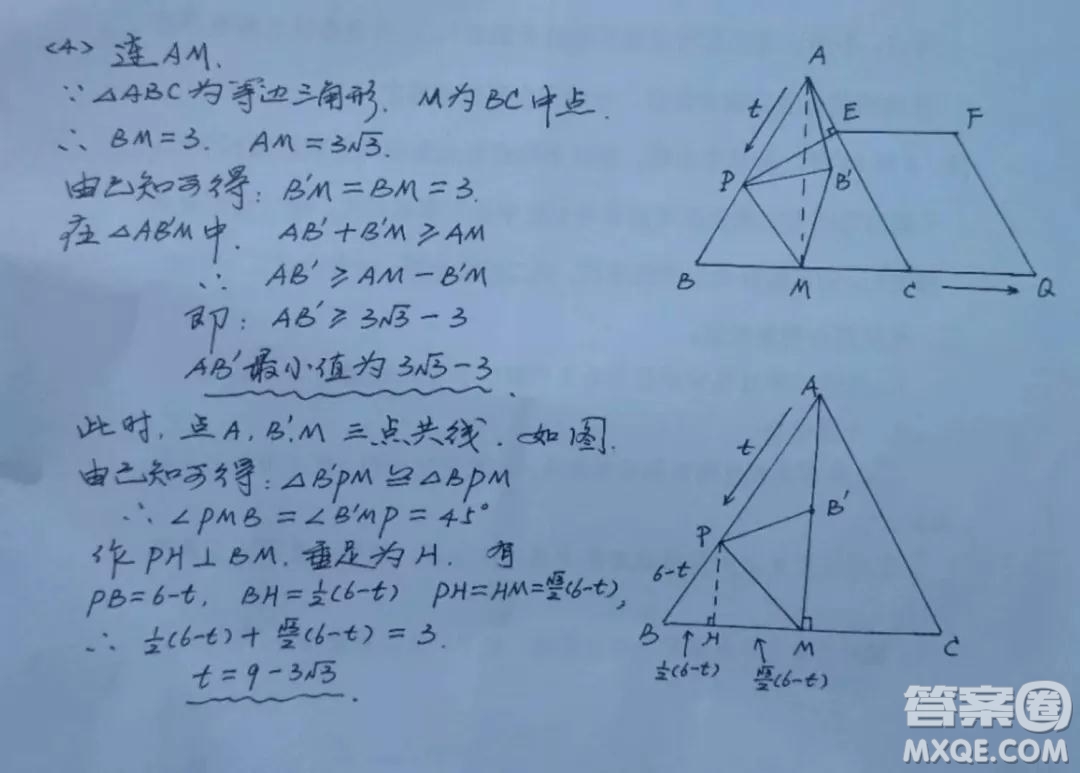 <4> 连AM.
∵ △ABC为等边三角形. M为BC中点.
∴ BM=3. AM=3√3.
由已知可得: B'M=BM=3.
在△AB'M中. AB'+B'M≥AM
∴ AB'≥AM-B'M
即: AB'≥3√3-3
AB'最小值为3√3-3.
A
t
E
F
P
B'
B
M
C
Q
此时, 点A, B', M三点共线. 如图.
由已知可得: △B'PM≌△BPM
∴ ∠PMB=∠B'MP=45°
作PH⊥BM, 垂足为H. 有
PB=6-t, BH=½(6-t) PH=HM=√3/2(6-t),
∴ ½(6-t)+√3/2(6-t)=3.
t=9-3√3.
A
t
B'
P
6-t
B
H
M
C
½(6-t)
√3/2(6-t)
答案圈
MXQE.COM